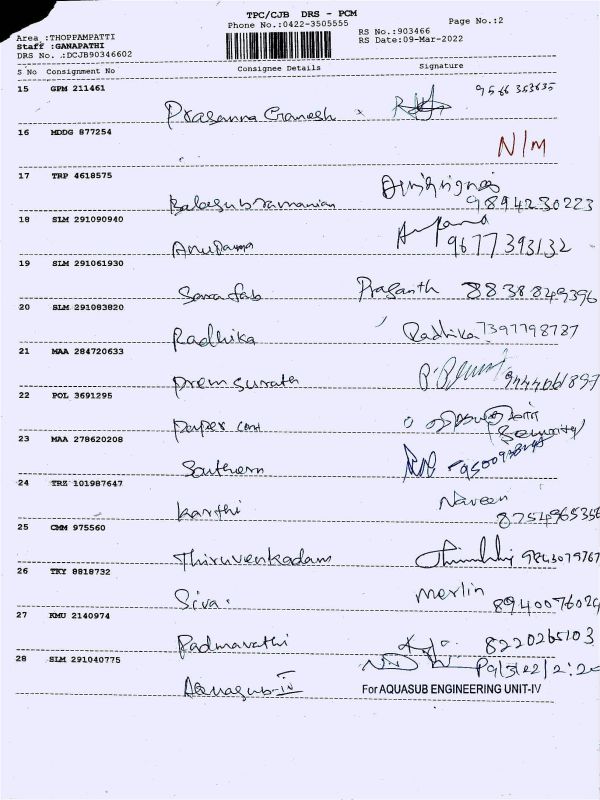 TPC/CJB DRS - PCM
Phone No.:0422-3505555
Page No.:2
Area :THOPPAMPATTI
Staff :GANAPATHI
DRS No. :DCJB90346602
RS No.:903466
RS Date:09-Mar-2022
S No Consignment No Consignee Details Signature
15 GPM 211461
Prasanna Ganesh 9566353635
16 MDDG 877254
N/M
17 TRP 4618575
Balasubramanian 9894230223
18 SLM 291090940
Anupama 9677393132
19 SLM 291061930
Sarafab Prasanth 8838849396
20 SLM 291083820
Radhika Radhika 7397798787
21 MAA 284720633
Premsurata 9444061897
22 POL 3691295
Paper cont (Security)
23 MAA 278620208
Southern
24 TRZ 101987647
Karthi Naveen 8754965356
25 CMM 975560
Thiruvenkadam 9843079767
26 TKY 8818732
Siva. Merlin 8940076029
27 KMU 2140974
Padmavathi 8220265103
28 SLM 291040775
Aquasub-IV
For AQUASUB ENGINEERING UNIT-IV